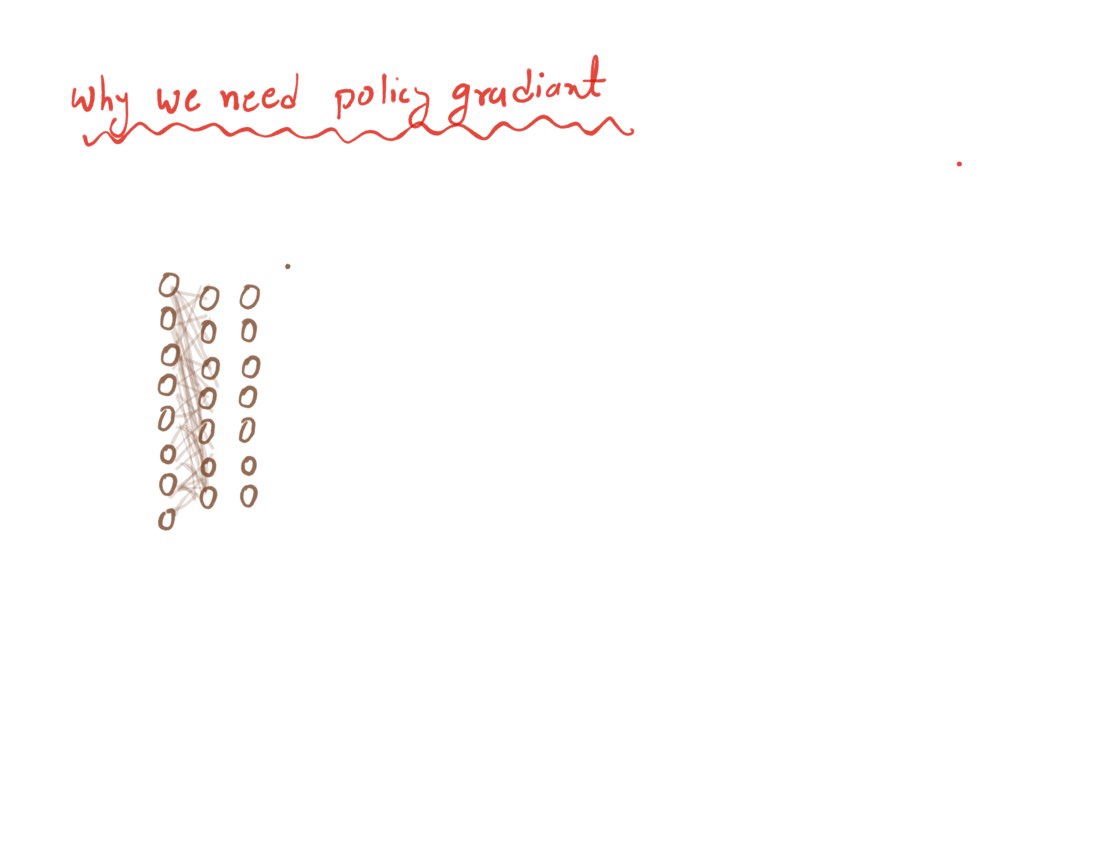 why we need policy gradiant